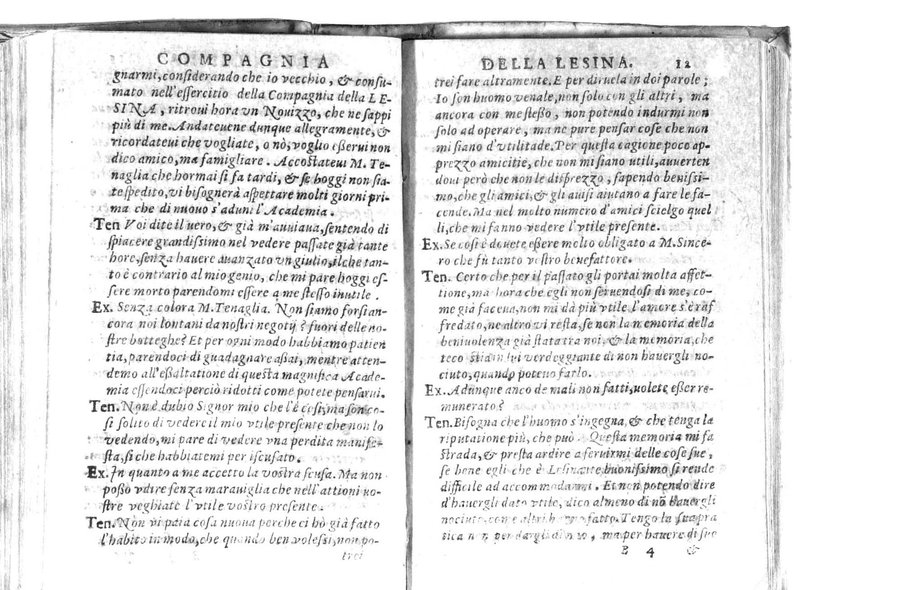 COMPAGNIA
gnarmi, considerando che io vecchio, & consu-
mato nell'essercitio della Compagnia della LE-
SINA, ritroui hora vn Nouizzo, che ne sappi
più di me. Andateuene dunque allegramente, &
ricordateui che vogliate, o nò, voglio esserui non
dico amico, ma famigliare. Accostateui M. Te-
naglia che hormai si fa tardi, & se hoggi non sia-
te spedito, vi bisognerà aspettare molti giorni pri-
ma che di nuouo s'aduni l'Academia.
Ten Voi dite il uero, & già m'auuiaua, sentendo di
spiacere grandissimo nel vedere passate già tante
hore, senza hauere auanzato un giulio, il che tan-
to è contrario al mio genio, che mi pare hoggi es-
sere morto parendomi essere a me stesso inutile.
Ex. Senza colora M. Tenaglia. Non siamo forsi an-
cora noi lontani da nostri negotij? fuori delle no-
stre botteghe? Et per ogni modo habbiamo patien
tia, parendoci di guadagnare assai, mentre atten-
demo all'essaltatione di questa magnifica Acade-
mia essendoci perciò ridotti come potete pensarui.
Ten. Non è dubio Signor mio che l'è cosi, ma son co-
si solito di vedere il mio vtile presente che non lo
vedendo, mi pare di vedere vna perdita manife-
sta, si che habbiatemi per iscusato.
Ex. In quanto a me accetto la vostra scusa. Ma non
posso vdire senza marauiglia che nell'attioni uo-
stre veghiate l'utile vostro presente.
Ten. Non vi paia cosa nuoua perche ci hò già fatto
l'habito in modo, che quando ben volessi, non po-
trei
DELLA LESINA. 12
trei fare altramente. E per diruela in doi parole;
Io son huomo venale, non solo con gli altri, ma
ancora con me stesso, non potendo indurmi non
solo ad operare, ma ne pure pensar cose che non
mi siano d'vtilitade. Per questa cagione poco ap-
prezzo amicitie, che non mi siano utili, auuerten
doui però che non le disprezzo, sapendo benissi-
mo, che gli amici, & gli auisi aiutano a fare le fa-
cende. Ma nel molto numero d'amici scielgo quel
li, che mi fanno vedere l'vtile presente.
Ex. Se cosi è douete essere molto obligato a M. Since-
ro che fù tanto vostro benefattore.
Ten. Certo che per il passato gli portai molta affet-
tione, ma hora che egli non seruendosi di me, co-
me già faceua, non mi dà più vtile l'amore s'è raf
fredato, ne altro vi resta, se non la memoria della
beniuolenza già stata tra noi, & la memoria, che
teco stia in lui verdeggiante di non hauergli no-
ciuto, quando poteuo farlo.
Ex. Adunque anco de mali non fatti, uolete esser re-
munerato?
Ten. Bisogna che l'huomo s'ingegna, & che tenga la
riputatione più, che può. Questa memoria mi fa
strada, & presta ardire a seruirmi delle cose sue,
se bene egli che è Lesinante buonissimo si rende
difficile ad accommodarmi. Et non potendo dire
d'hauergli dato vtile, dico almeno di nõ hauergli
nociuto, come altri hanno fatto. Tengo la sua pra
tica non per dargli di mio, ma per hauere di suo
B 4 &